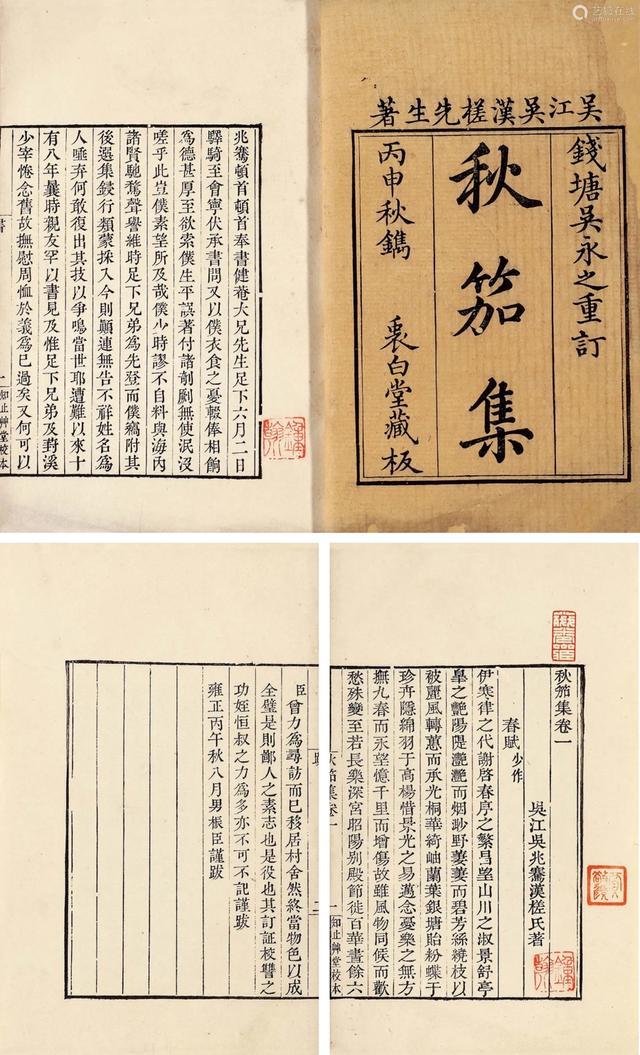 艺狐在线
吳江吳漢槎先生著
錢塘吳永之重訂
秋笳集
丙申秋鐫
衷白堂藏板
兆騫頓首頓首奉書健菴大兄先生足下六月二日
驛騎至會寧伏承書問又以僕衣食之憂輟俸相餉
為德甚厚至欲索僕生平誤著付諸剞劂無使泯沒
嗟乎此豈僕素望所及哉僕少時謬不自料與海內
諸賢馳騖聲譽維時足下兄弟為先登而僕竊附其
後選集錢行類蒙採入今則顛連無告不祥姓名為
人唾弃何敢復出其技以爭鳴當世耶遭難以來十
有八年曩時親友罕以書見及惟足下兄弟及對溪
少宰惓念舊故撫慰周恤於義為已過矣又何可以
書 一 知止艸堂校本
秋笳集卷一
吳江吳兆騫漢槎氏著
春賦 少作
伊寒律之代謝啓春序之繁昌望山川之淑景舒亭
臯之艷陽隄灧灧而烟眇野萋萋而碧芳絲繞枝以
被麗風轉蕙而承光桐華綺岫蘭葉銀塘貽粉蝶于
珍卉隱綿羽于高楊惜景光之易邁念憂樂之無方
撫九春而永望憶千里而增傷故雖風物同候而歡
愁殊變至若長樂深宮昭陽別殿節徙百華晝餘六
秋笳集卷一 一 知止艸堂校本
臣曾力為尋訪而已移居村舍然終當物色以成
全璧是則鄙人之素志也是役也其訂証校讐之
功姪恒叔之力為多亦不可不記謹跋
雍正丙午秋八月男振臣謹跋
跋 二